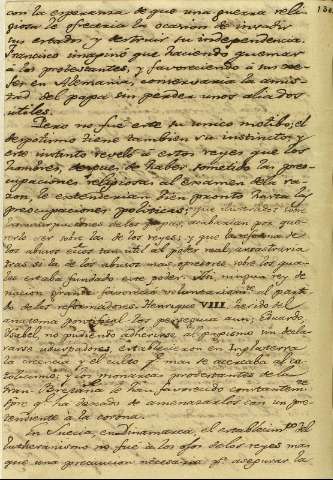 con la esperanza de que una guerra reli
giosa le ofreceria la ocasion de invadir
sus estados y destruir su independencia.
Francisco imaginó que haciendo quemar
á los protestantes, y favoreciendo á
en Alemania, conservaria la amis
tad del papa sin perder unos aliados
utiles.
Pero no fué este su unico motibo; el
despotismo tiene tambien su instinto; y
este instinto reveló á estos reyes que los
hombres, despues de haber sometido las preo
cupaciones religiosas al examen de la ra
zon, le estenderian bien pronto hasta las
preocupaciones politicas; que ilustrados sobre
las usurpaciones de los papas, acabarian por que
rerlo ser sobre las de los reyes; y que la reforma de
los abusos eclesiasticos tan util al poder real, arrastraria
tras sí la de los abusos mas opresores sobre los qua
les estaba fundado este poder. Asi, ningun rey de
nacion grande favoreció voluntariamente al parti
do de los reformadores. Henrique VIII herido del
anatema pontifical los perseguia aun; Eduardo
Isabel, no pudiendo adherirse al papismo sin decla
rarse usurpadores, establecieron en Inglaterra
la creencia y el culto q.e mas se acercaba al ca
tolicismo. Los monarcas protestantes de la
Gran Bretaña han favorecido constanteme
q.e ha dexado de amenazarlos con un pre
tendiente á la corona.
En Suecia, en Dinamarca, el establecim.to del
lutheranismo no fué á los ojos de los reyes mas
que una precaucion necesaria p.a asegurar la